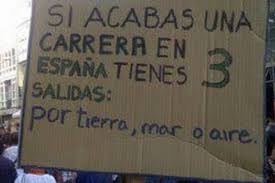 SI ACABAS UNA
CARRERA EN
ESPAÑA TIENES 3
SALIDAS:
por tierra, mar o aire.